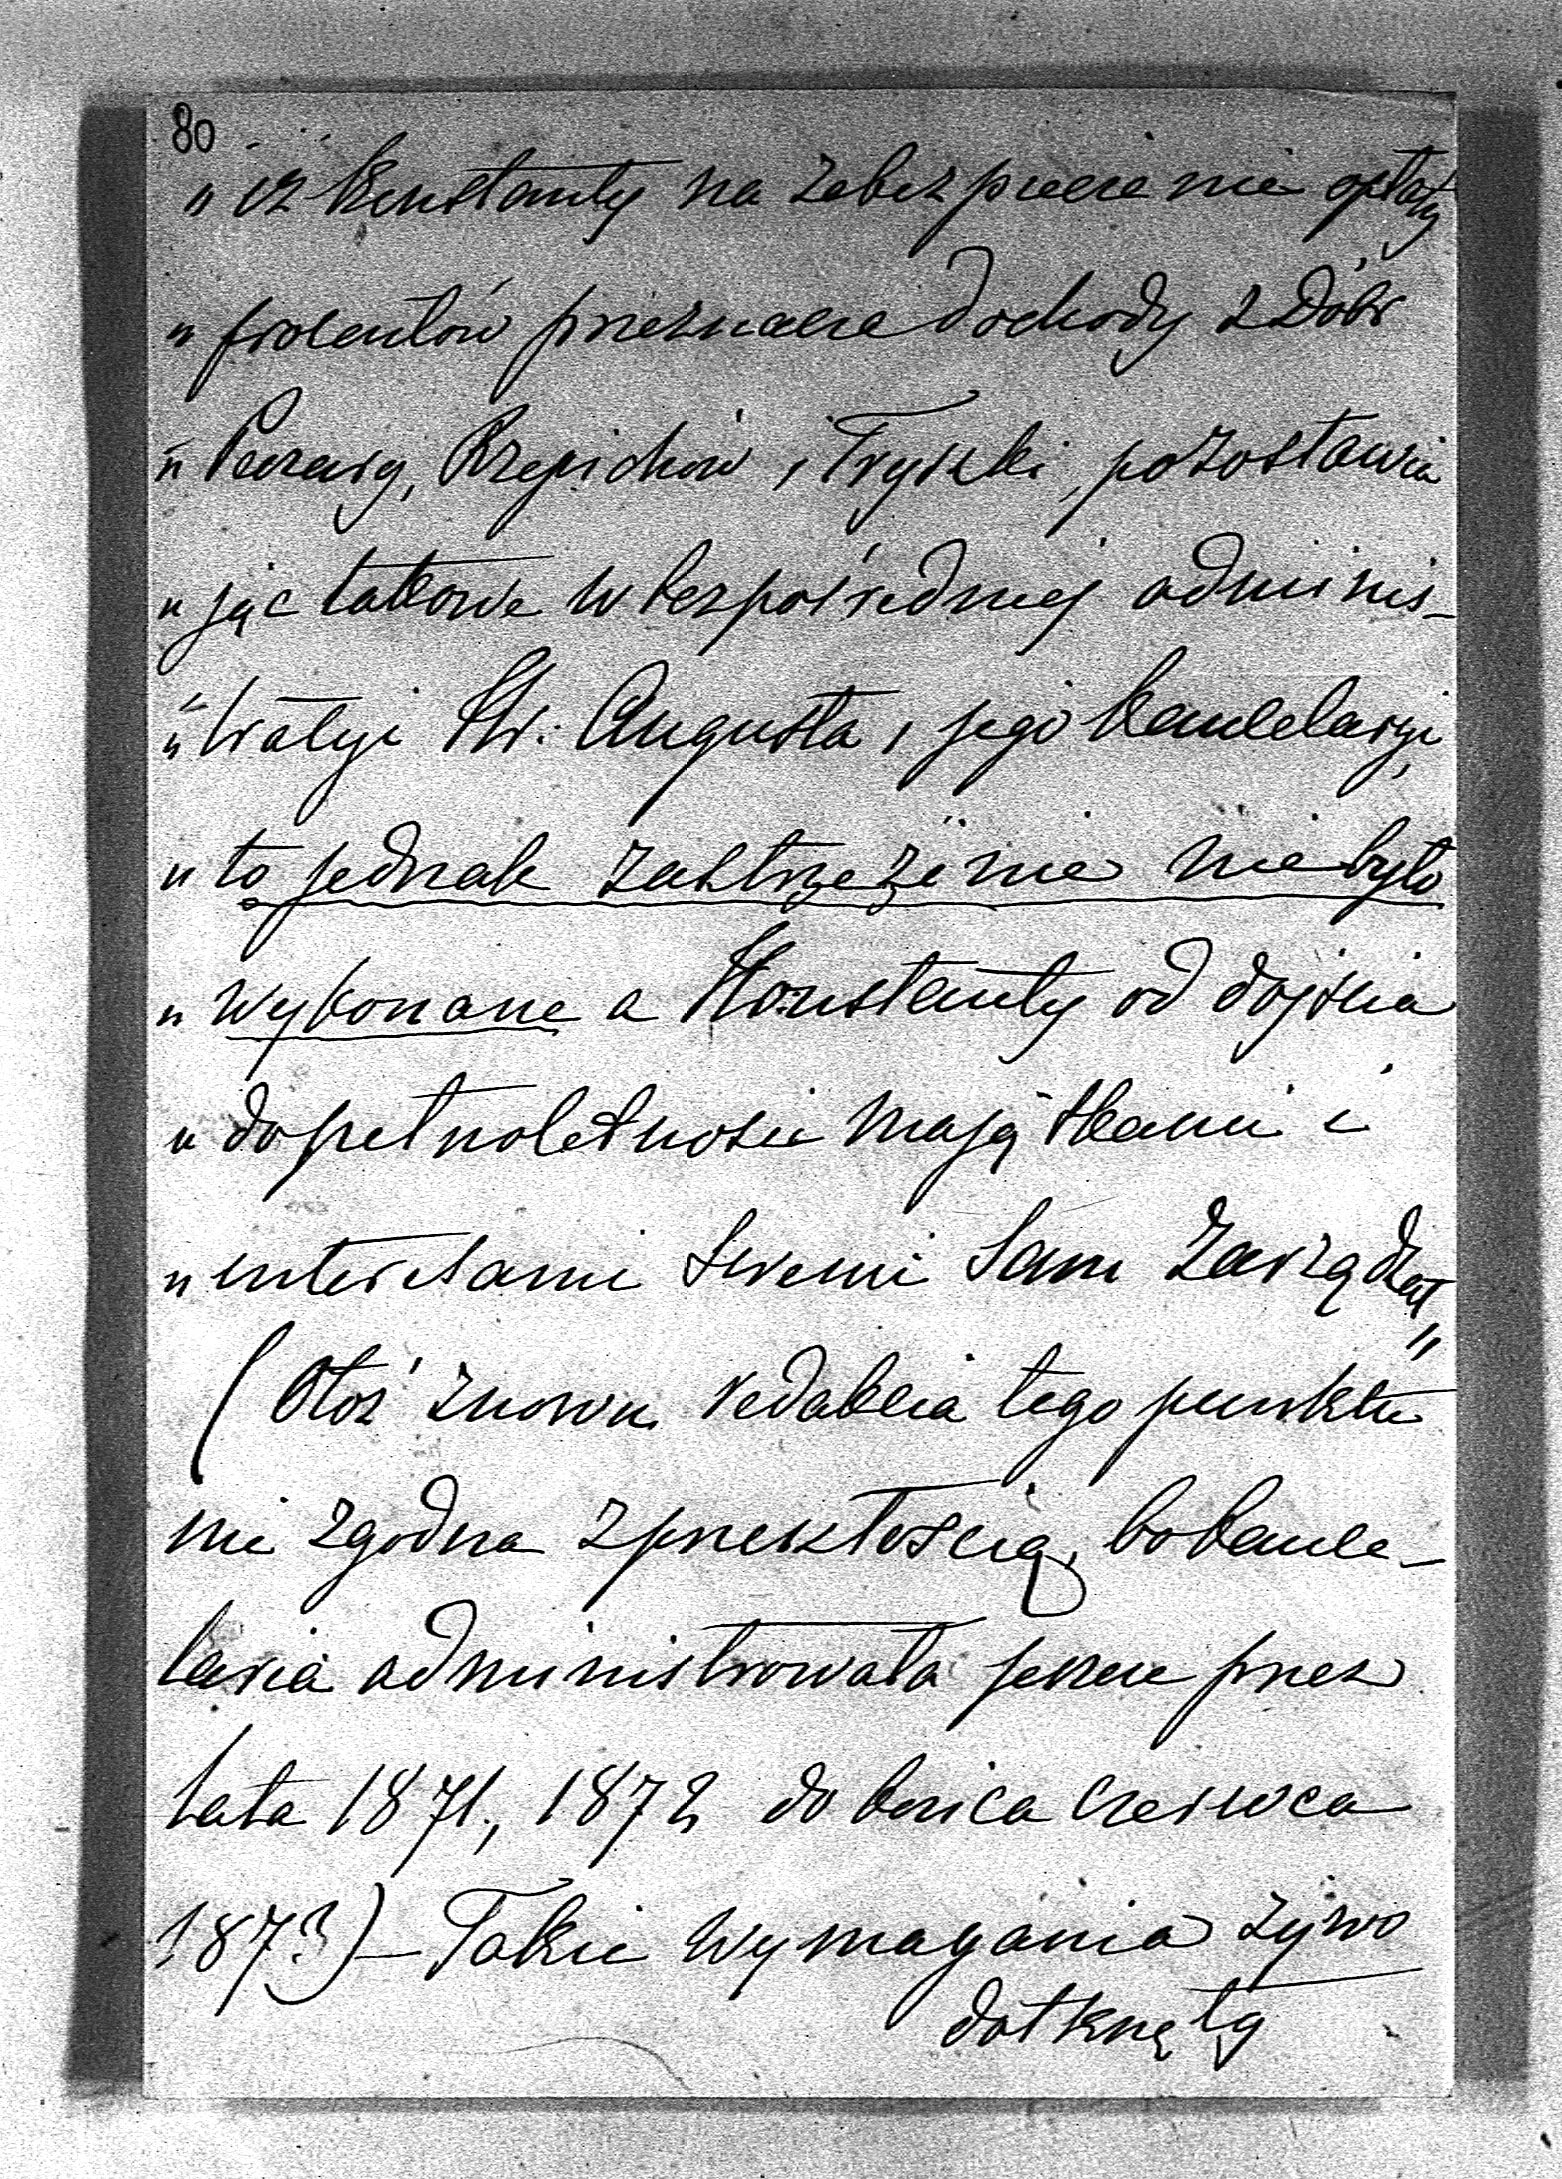 80
„ iż Konstanty na zabezpieczenie opłaty
„ procentów przeznacza dochody z Dóbr
„ Rzepichów i Tryszki, pozostawia
„ jąc takowe w bezpośredniej adminis-
„ tracyi Hr. Augusta i jego kancelaryi,
„ to jednak zastrzeżenie nie było
„ wykonane a Konstanty od dojścia
„ do pełnoletności majątkami i
„ interesami swemi sam zarządzał"
(Otoż znowu redakcia tego punktu
nie zgodna z przeszłością, bo kance-
laria administrowała jeszcze przez
lata 1871, 1872 do końca czerwca
1873) – Takie wymagania żywo
dotknęły